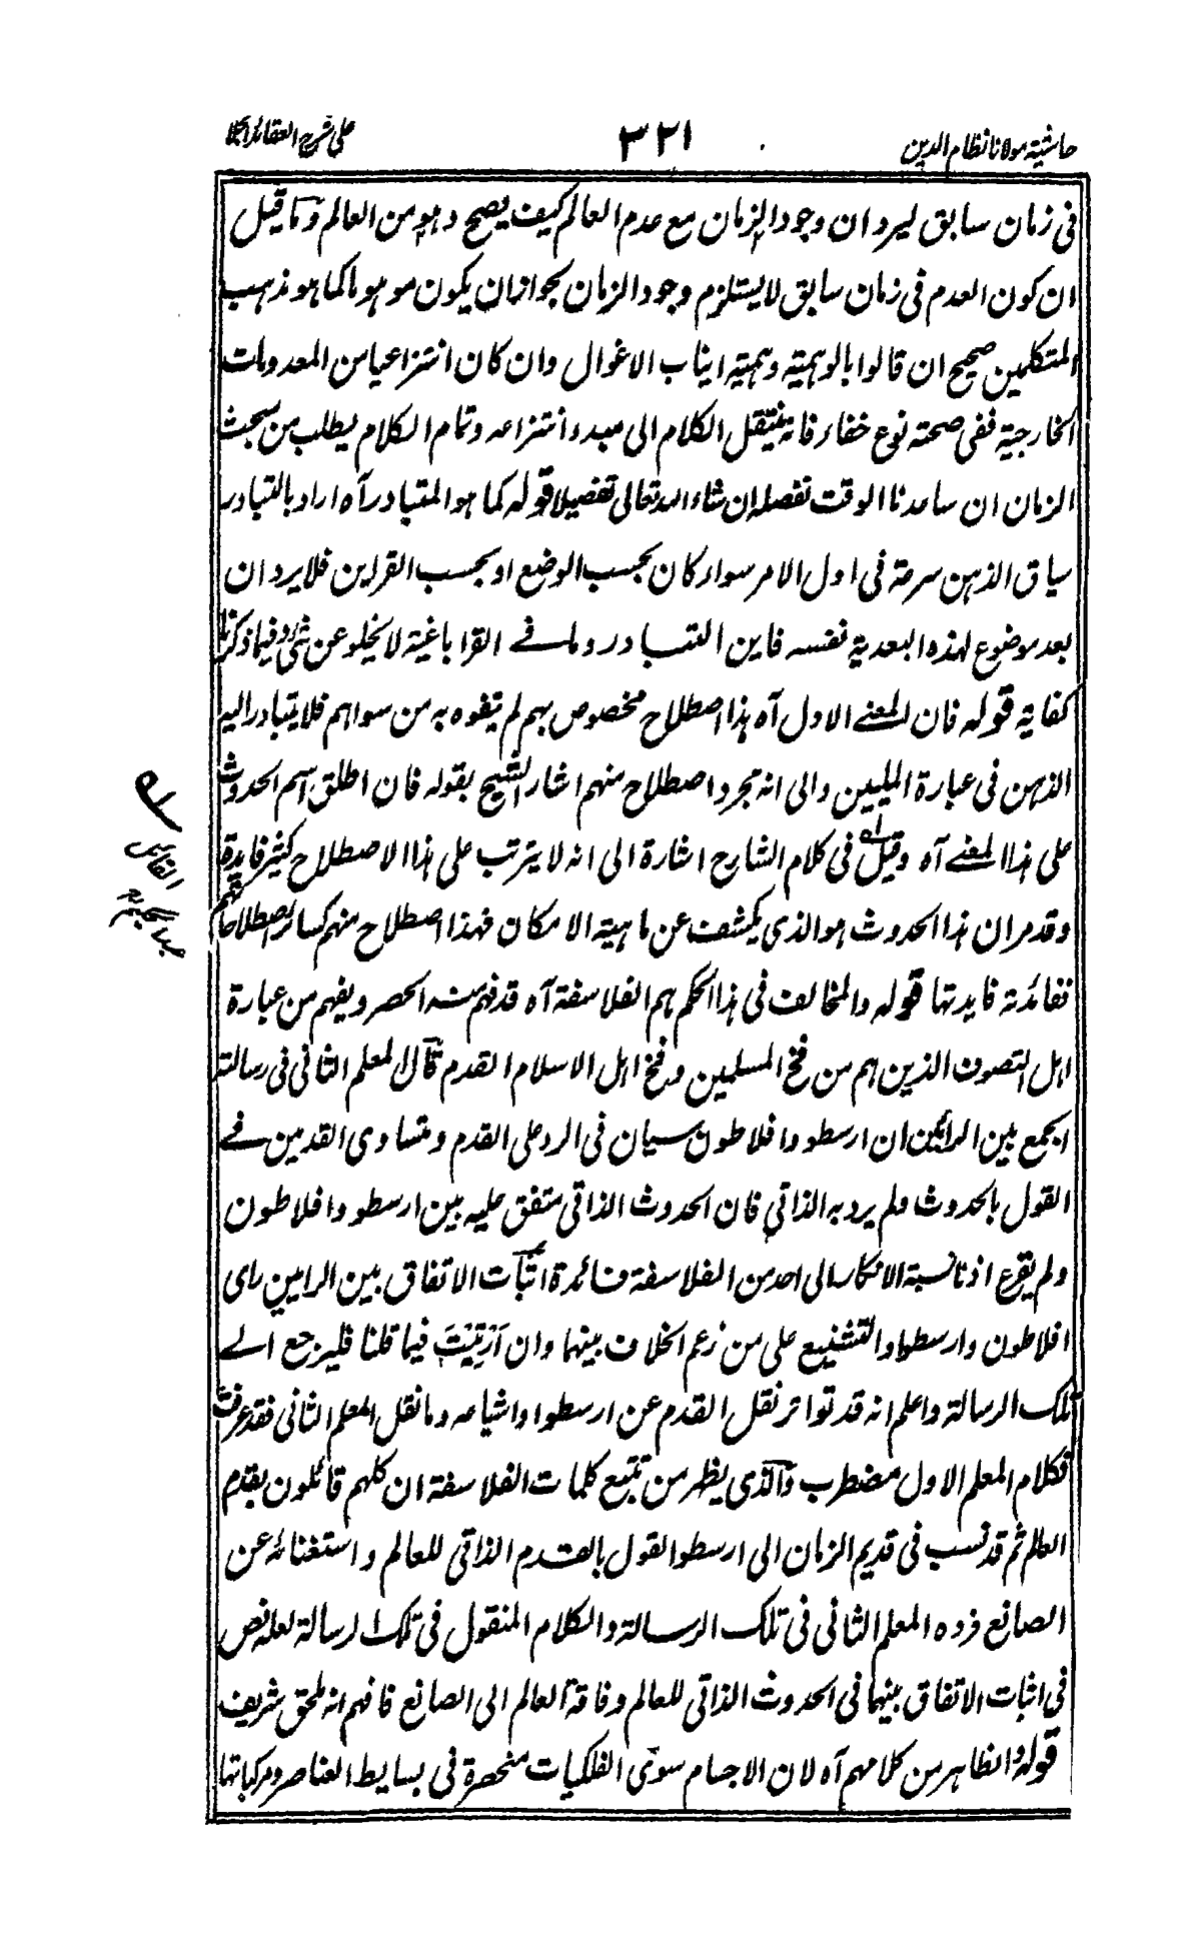 حاشية مولانا نظام الدين
٣٢١
على شرح العقائد
فى زمان سابق ليرد ان وجود الزمان مع عدم العالم كيف يصح وهو من العالم وما قيل
ان كون العدم فى زمان سابق لا يستلزم وجود الزمان لجواز ان يكون موهوما كما هو مذهب
المتكلمين صحيح ان قالوا بالوهمية وهمية انياب الاغوال وان كان انتزاعيا من المعدومات
الخارجية ففى صحته نوع خفاء فانه ينتقل الكلام الى مبدء انتزاعه وتمام الكلام يطلب من مبحث
الزمان ان ساعدنا الوقت نفصله ان شاء الله تعالى تفصيلا قوله كما هو المتبادر آه اراد بالتبادر
سياق الذهن سرعة فى اول الامر سواء كان بحسب الوضع او بحسب القراين فلا يرد ان
بعد موضوع لهذه البعدية نفسه فاين التبادر وما فى القراباغية لا يخلو عن شئ وفيما ذكرنا
كفاية قوله فان المعنى الاول آه هذا اصطلاح مخصوص بهم لم يتفوه به من سواهم فلا يتبادر اليه
الذهن فى عبارة المليين والى انه مجرد اصطلاح منهم اشار الشيخ بقوله فان اطلق اسم الحدوث
على هذا المعنى آه وقيل له فى كلام الشارح اشارة الى انه لا يترتب على هذا الاصطلاح كثير فايدة
وقد مر ان هذا الحدوث هو الذى يكشف عن ماهية الامكان فهذا اصطلاح منهم كساير اصطلاحاتهم
ففائدته فايدتها قوله والمخالف فى هذا الحكم هم الفلاسفة آه قد فهم منه الحصر ويفهم من عبارة
اهل التصوف الذين هم من فخ المسلمين وفخ اهل الاسلام القدم قال المعلم الثانى فى رسالته
الجمع بين الرائين ان ارسطو وافلاطون سيان فى الرد على القدم ومتساوى القدمين فى
القول بالحدوث ولم يرد به الذاتى فان الحدوث الذاتى متفق عليه بين ارسطو وافلاطون
ولم يقرع اذنا نسبة الانكار الى احد من الفلاسفة فما ئدة اثبات الاتفاق بين الراىين راى
افلاطون وارسطو والتشنيع على من زعم الخلاف بينهما وان ارتبت فيما قلنا فليرجع الى
تلك الرسالة واعلم انه قد تواتر نقل القدم عن ارسطو واشياعه وما نقل المعلم الثانى فقد عرفت
فكلام المعلم الاول مضطرب والذى يظهر من تتبع كلمات الفلاسفة ان كلهم قائلون بقدم
العالم ثم قد نسب فى قديم الزمان الى ارسطو القول بالقدم الذاتى للعالم واستغنائه عن
الصانع فرده المعلم الثانى فى تلك الرسالة والكلام المنقول فى تلك الرسالة لعله نص
فى اثبات الاتفاق بينهما فى الحدوث الذاتى للعالم وفاقة العالم الى الصانع فافهم انه ملحق شريف
قوله والظاهر من كلامهم آه لان الاجسام سوى الفلكيات منحصرة فى بسايط العناصر ومركباتها
له القائل